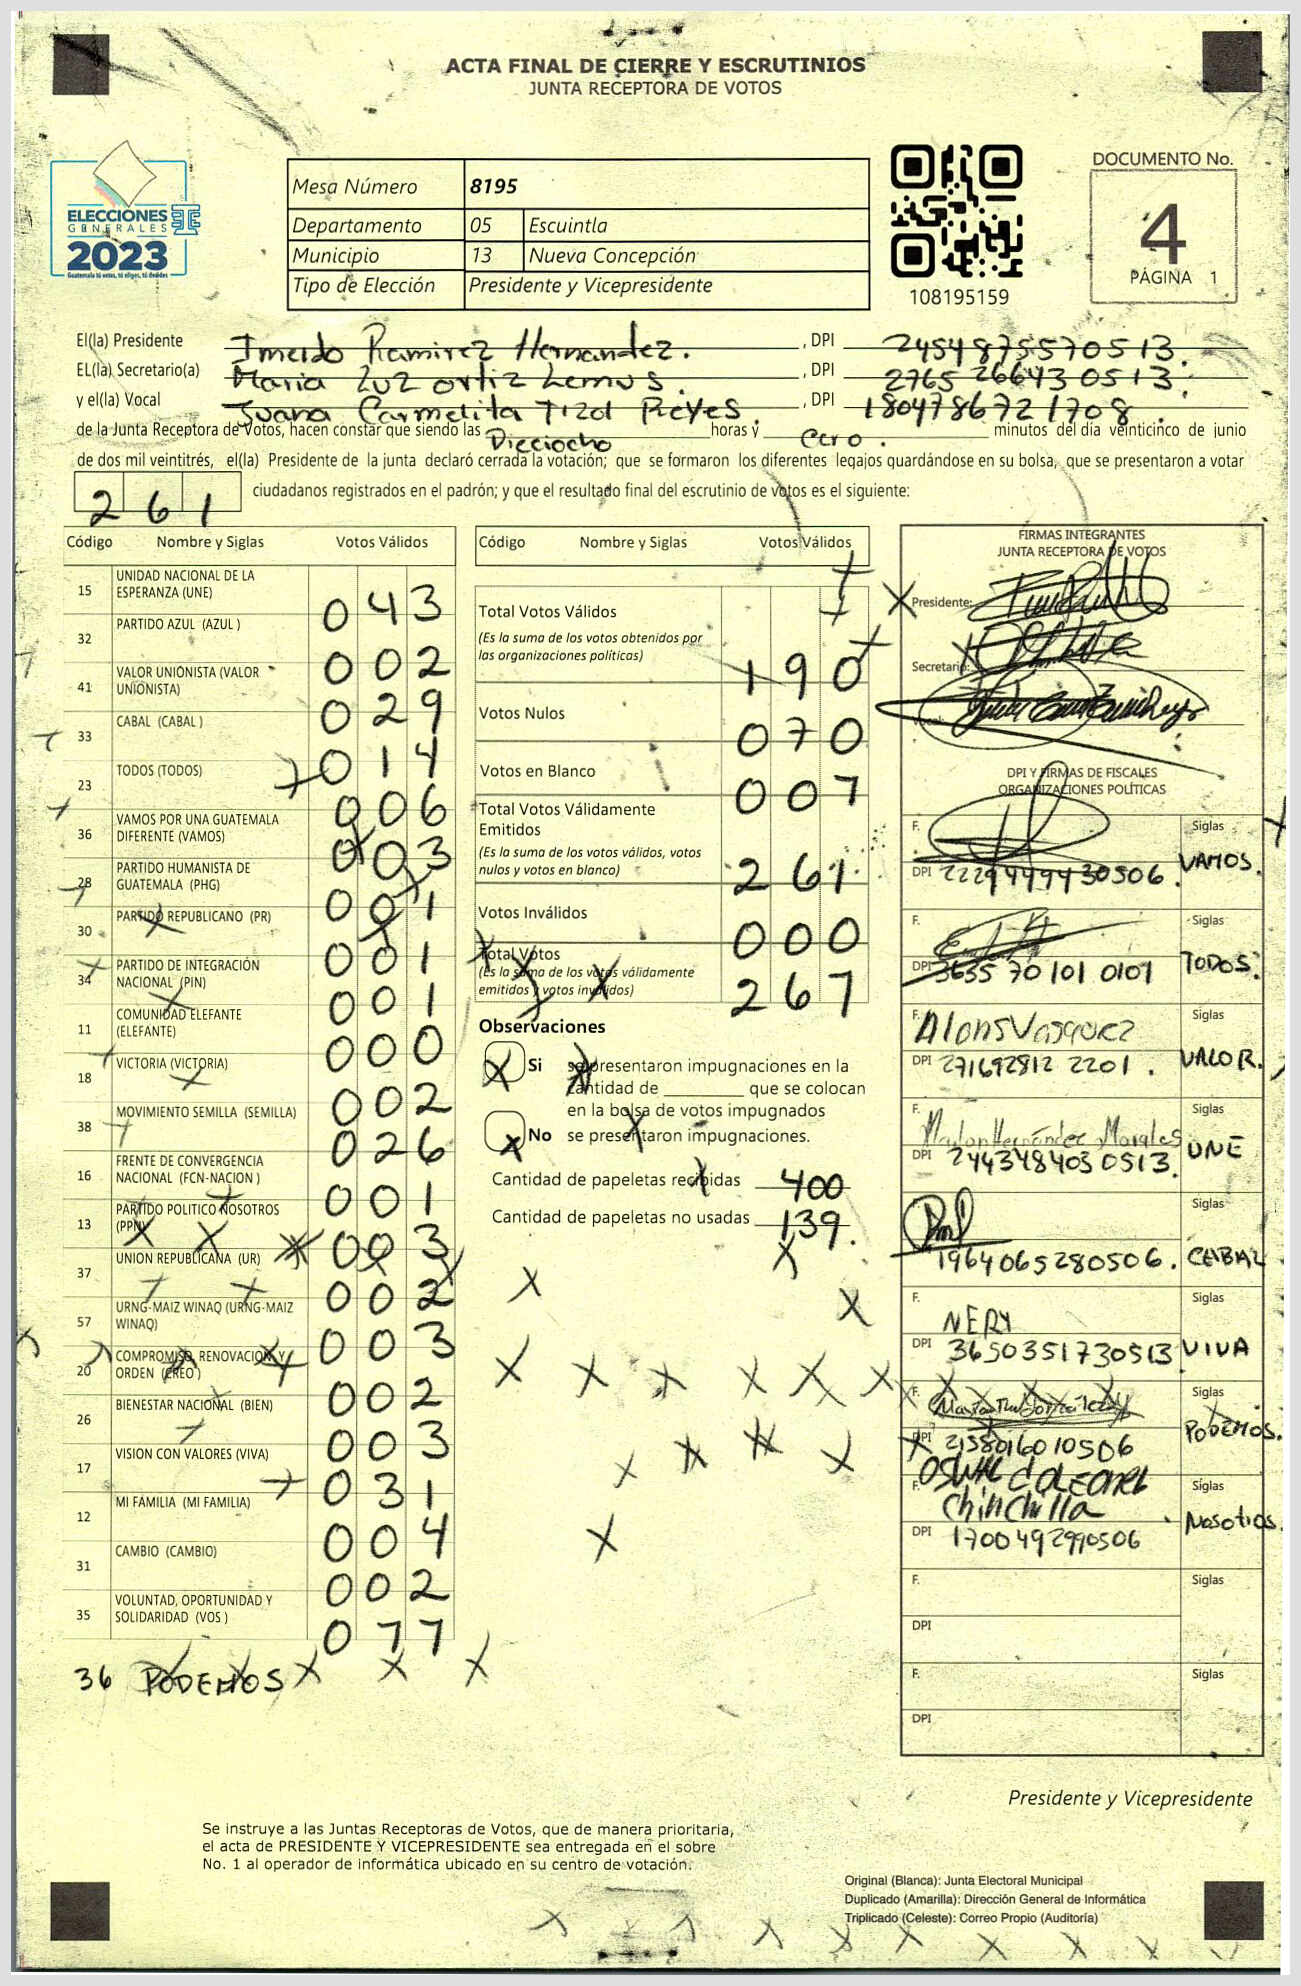 ACTA FINAL DE CIERRE Y ESCRUTINIOS
JUNTA RECEPTORA DE VOTOS
ELECCIONES
GENERALES
2023
Guatemala tú votas, tú eliges, tú decides
Mesa Número 8195
Departamento 05 Escuintla
Municipio 13 Nueva Concepción
Tipo de Elección Presidente y Vicepresidente
108195159
DOCUMENTO No.
4
PÁGINA 1
El(la) Presidente Imeldo Ramirez Hernandez. , DPI 2454875570513.
EL(la) Secretario(a) Maria Luz ortiz Lemus. , DPI 2765266430513.
y el(la) Vocal Juana Carmelita Tizol Reyes. , DPI 1804786721708.
de la Junta Receptora de Votos, hacen constar que siendo las Dieciocho horas y cero. minutos del día veinticinco de junio
de dos mil veintitrés, el(la) Presidente de la junta declaró cerrada la votación; que se formaron los diferentes legajos quardándose en su bolsa, que se presentaron a votar
261 ciudadanos registrados en el padrón; y que el resultado final del escrutinio de votos es el siguiente:
Código Nombre y Siglas Votos Válidos
15 UNIDAD NACIONAL DE LA
ESPERANZA (UNE) 043
32 PARTIDO AZUL (AZUL ) 002
41 VALOR UNIONISTA (VALOR
UNIONISTA) 029
33 CABAL (CABAL ) 014
23 TODOS (TODOS) 006
36 VAMOS POR UNA GUATEMALA
DIFERENTE (VAMOS) 003
28 PARTIDO HUMANISTA DE
GUATEMALA (PHG) 001
30 PARTIDO REPUBLICANO (PR) 001
34 PARTIDO DE INTEGRACIÓN
NACIONAL (PIN) 001
11 COMUNIDAD ELEFANTE
(ELEFANTE) 000
18 VICTORIA (VICTORIA) 002
38 MOVIMIENTO SEMILLA (SEMILLA) 026
16 FRENTE DE CONVERGENCIA
NACIONAL (FCN-NACION ) 001
13 PARTIDO POLITICO NOSOTROS
(PPN) 003
37 UNION REPUBLICANA (UR) 002
57 URNG-MAIZ WINAQ (URNG-MAIZ
WINAQ) 003
20 COMPROMISO, RENOVACION Y
ORDEN (CREO ) 002
26 BIENESTAR NACIONAL (BIEN) 003
17 VISION CON VALORES (VIVA) 031
12 MI FAMILIA (MI FAMILIA) 004
31 CAMBIO (CAMBIO) 002
35 VOLUNTAD, OPORTUNIDAD Y
SOLIDARIDAD (VOS ) 077
36 PODEMOS
Código Nombre y Siglas Votos Válidos
Total Votos Válidos
(Es la suma de los votos obtenidos por
las organizaciones políticas) 190
Votos Nulos 070
Votos en Blanco 007
Total Votos Válidamente
Emitidos
(Es la suma de los votos válidos, votos
nulos y votos en blanco) 261
Votos Inválidos 000
Total Votos
(Es la suma de los votos válidamente
emitidos y votos inválidos) 267
Observaciones
Si se presentaron impugnaciones en la
cantidad de ________ que se colocan
en la bolsa de votos impugnados
No se presentaron impugnaciones.
Cantidad de papeletas recibidas 400
Cantidad de papeletas no usadas 139.
FIRMAS INTEGRANTES
JUNTA RECEPTORA DE VOTOS
Presidente:
Secretario:
DPI Y FIRMAS DE FISCALES
ORGANIZACIONES POLÍTICAS
F. Siglas
DPI VAMOS.
F. Siglas
DPI 3635 70101 0101 TODOS.
F. Alons Vasquez Siglas
DPI 271692812 2201. VALOR.
F. Marlon Hernández Morales Siglas
DPI 2443484030513. UNE
Siglas
1964065280506. CABAL
F. NERY Siglas
DPI 3650351730513 VIVA
F. Siglas
DPI 2158016010506 PODEMOS.
F. Chinchilla Siglas
DPI 1700492990506 Nosotros.
F. Siglas
DPI
F. Siglas
DPI
Presidente y Vicepresidente
Se instruye a las Juntas Receptoras de Votos, que de manera prioritaria,
el acta de PRESIDENTE Y VICEPRESIDENTE sea entregada en el sobre
No. 1 al operador de informática ubicado en su centro de votación.
Original (Blanca): Junta Electoral Municipal
Duplicado (Amarilla): Dirección General de Informática
Triplicado (Celeste): Correo Propio (Auditoría)